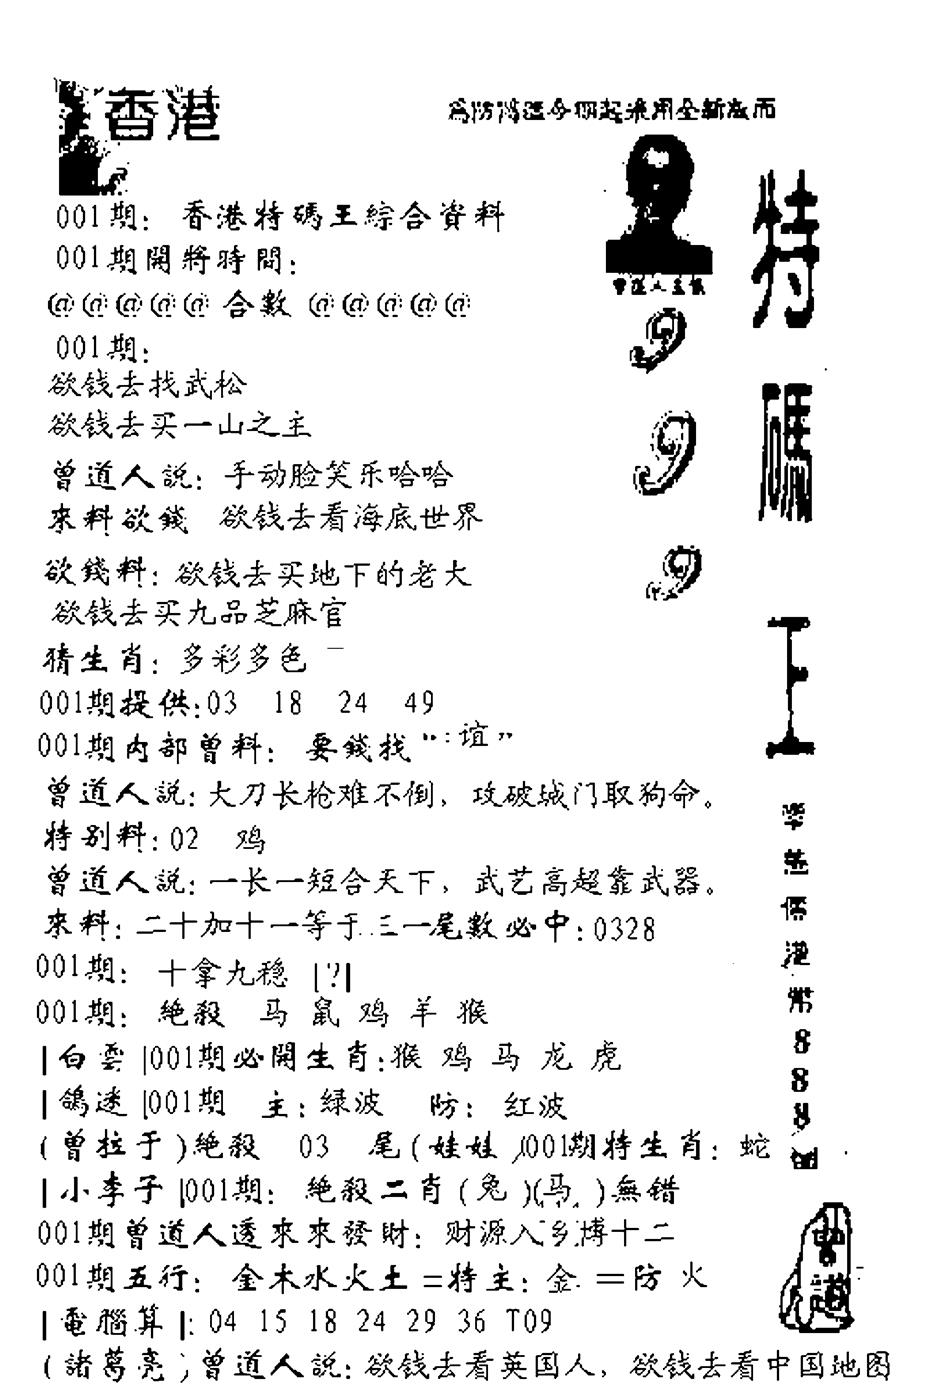 香港
為防
001期：香港特碼王綜合資料
001期開將時間：
@@@@@ 合數 @@@@@
001期：
欲钱去找武松
欲钱去买一山之主
曾道人説：手动脸笑乐哈哈
來料欲錢 欲钱去看海底世界
欲錢料：欲钱去买地下的老大
欲钱去买九品芝麻官
猜生肖：多彩多色
001期提供:03 18 24 49
001期内部曾料： 要錢找“：谊”
曾道人説：大刀长枪难不倒，攻破城门取狗命。
特别料：02 鸡
曾道人説：一长一短合天下，武艺高超靠武器。
來料：二十加十一等于三一尾數必中:0328
001期： 十拿九稳 |?|
001期： 絶殺 马 鼠 鸡 羊 猴
|白雲|001期必開生肖:猴 鸡 马 龙 虎
|鴿迷|001期 主：绿波 防： 红波
(曾拉于)絶殺 03 尾(娃娃)001期特生肖：蛇
|小李子|001期： 絶殺二肖(兔)(马)無错
001期曾道人透來來發財：财源入乡博十二
001期五行： 金木水火土=特主：金=防 火
|電腦算|: 04 15 18 24 29 36 T09
(諸葛亮)曾道人説：欲钱去看英国人，欲钱去看中国地图
曾道人
9
9
9
特
碼
王
港
幣
8
8
8